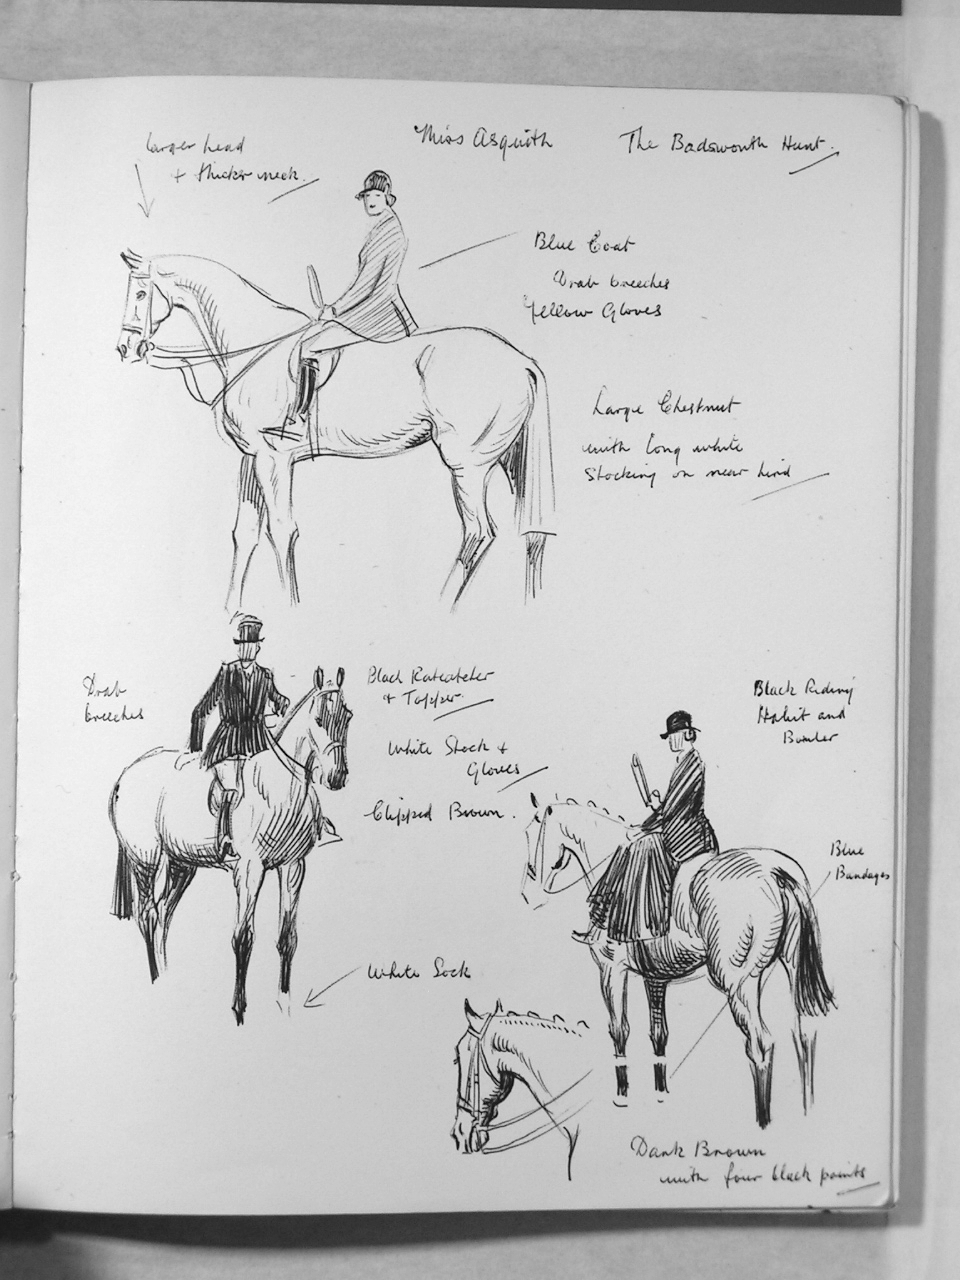 Larger head
+ thicker neck.
Miss Asquith
The Badsworth Hunt.
Blue Coat
Drab breeches
Yellow Gloves
Large Chestnut
with long white
Stocking on near hind
Drab
breeches
Black Ratcatcher
& Topper.
White Stock +
Gloves
Clipped Brown.
White Sock
Black Riding
Habit and
Bowler
Blue
Bandages
Dark Brown
with four black points